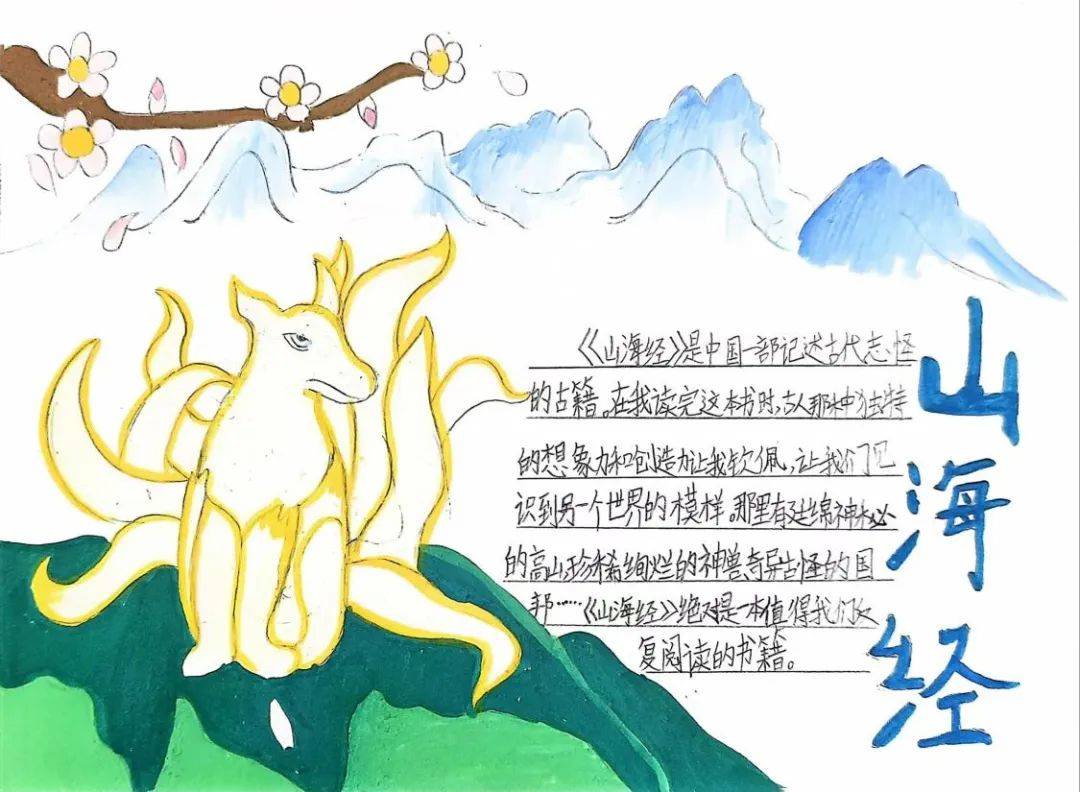 《山海经》是中国一部记述古代志怪
的古籍。在我读完这本书时,古人那种独特
的想象力和创造力让我钦佩,让我们见
识到另一个世界的模样。那里有延绵神秘
的高山、珍稀绚烂的神兽、奇异古怪的国
邦……《山海经》绝对是一本值得我们反
复阅读的书籍。
山
海
经